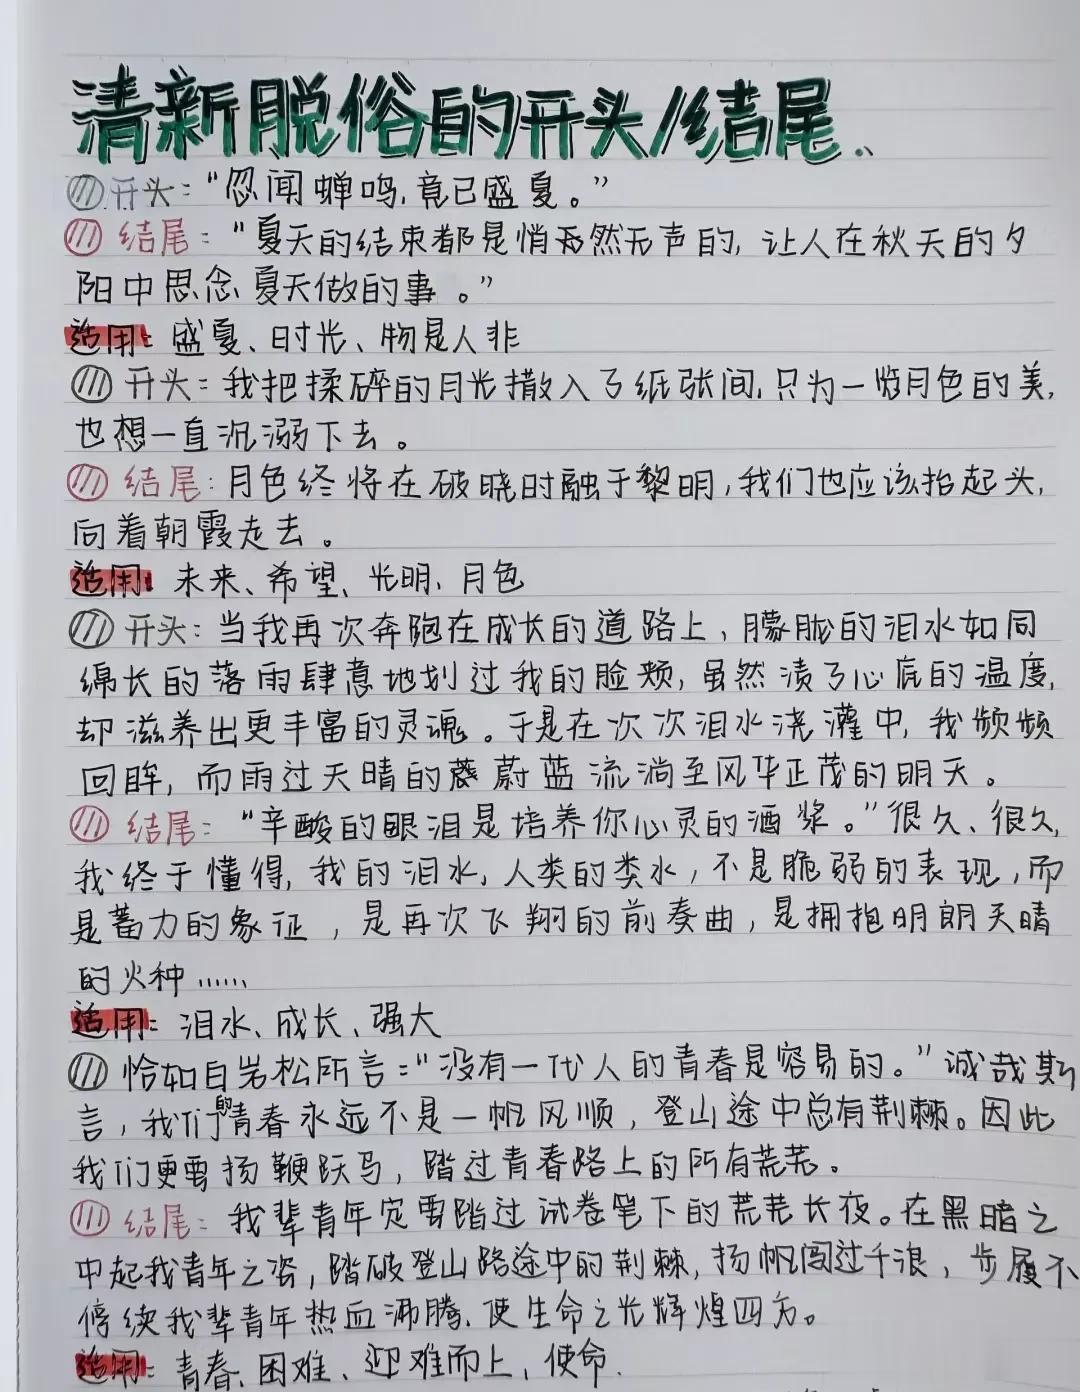 清新脱俗的开头/结尾、
开头:“忽闻蝉鸣,竟已盛夏。”
结尾:“夏天的结束都是悄然无声的,让人在秋天的夕
阳中思念夏天做的事。”
适用:盛夏、时光、物是人非
开头:我把揉碎的月光撒入了纸张间,只为一览月色的美,
也想一直沉溺下去。
结尾:月色终将在破晓时融于黎明,我们也应该抬起头,
向着朝霞走去。
适用:未来、希望、光明、月色
开头:当我再次奔跑在成长的道路上,朦胧的泪水如同
绵长的落雨肆意地划过我的脸颊,虽然渍了心底的温度,
却滋养出更丰富的灵魂。于是在次次泪水浇灌中,我频频
回眸,而雨过天晴的蔚蓝流淌至风华正茂的明天。
结尾:“辛酸的眼泪是培养你心灵的酒浆。”很久、很久,
我终于懂得,我的泪水,人类的类水,不是脆弱的表现,而
是蓄力的象征,是再次飞翔的前奏曲,是拥抱明朗天晴
的火种……
适用:泪水、成长、强大
恰如白岩松所言:“没有一代人的青春是容易的。”诚哉斯
言,我们的青春永远不是一帆风顺,登山途中总有荆棘。因此
我们更要扬鞭跃马,踏过青春路上的所有荒芜。
结尾:我辈青年定要踏过试卷笔下的荒芜长夜。在黑暗之
中起我青年之姿,踏破登山路途中的荆棘,扬帆闯过千浪,步履不
停续我辈青年热血沸腾,使生命之光辉煌四方。
适用:青春、困难、迎难而上,使命.